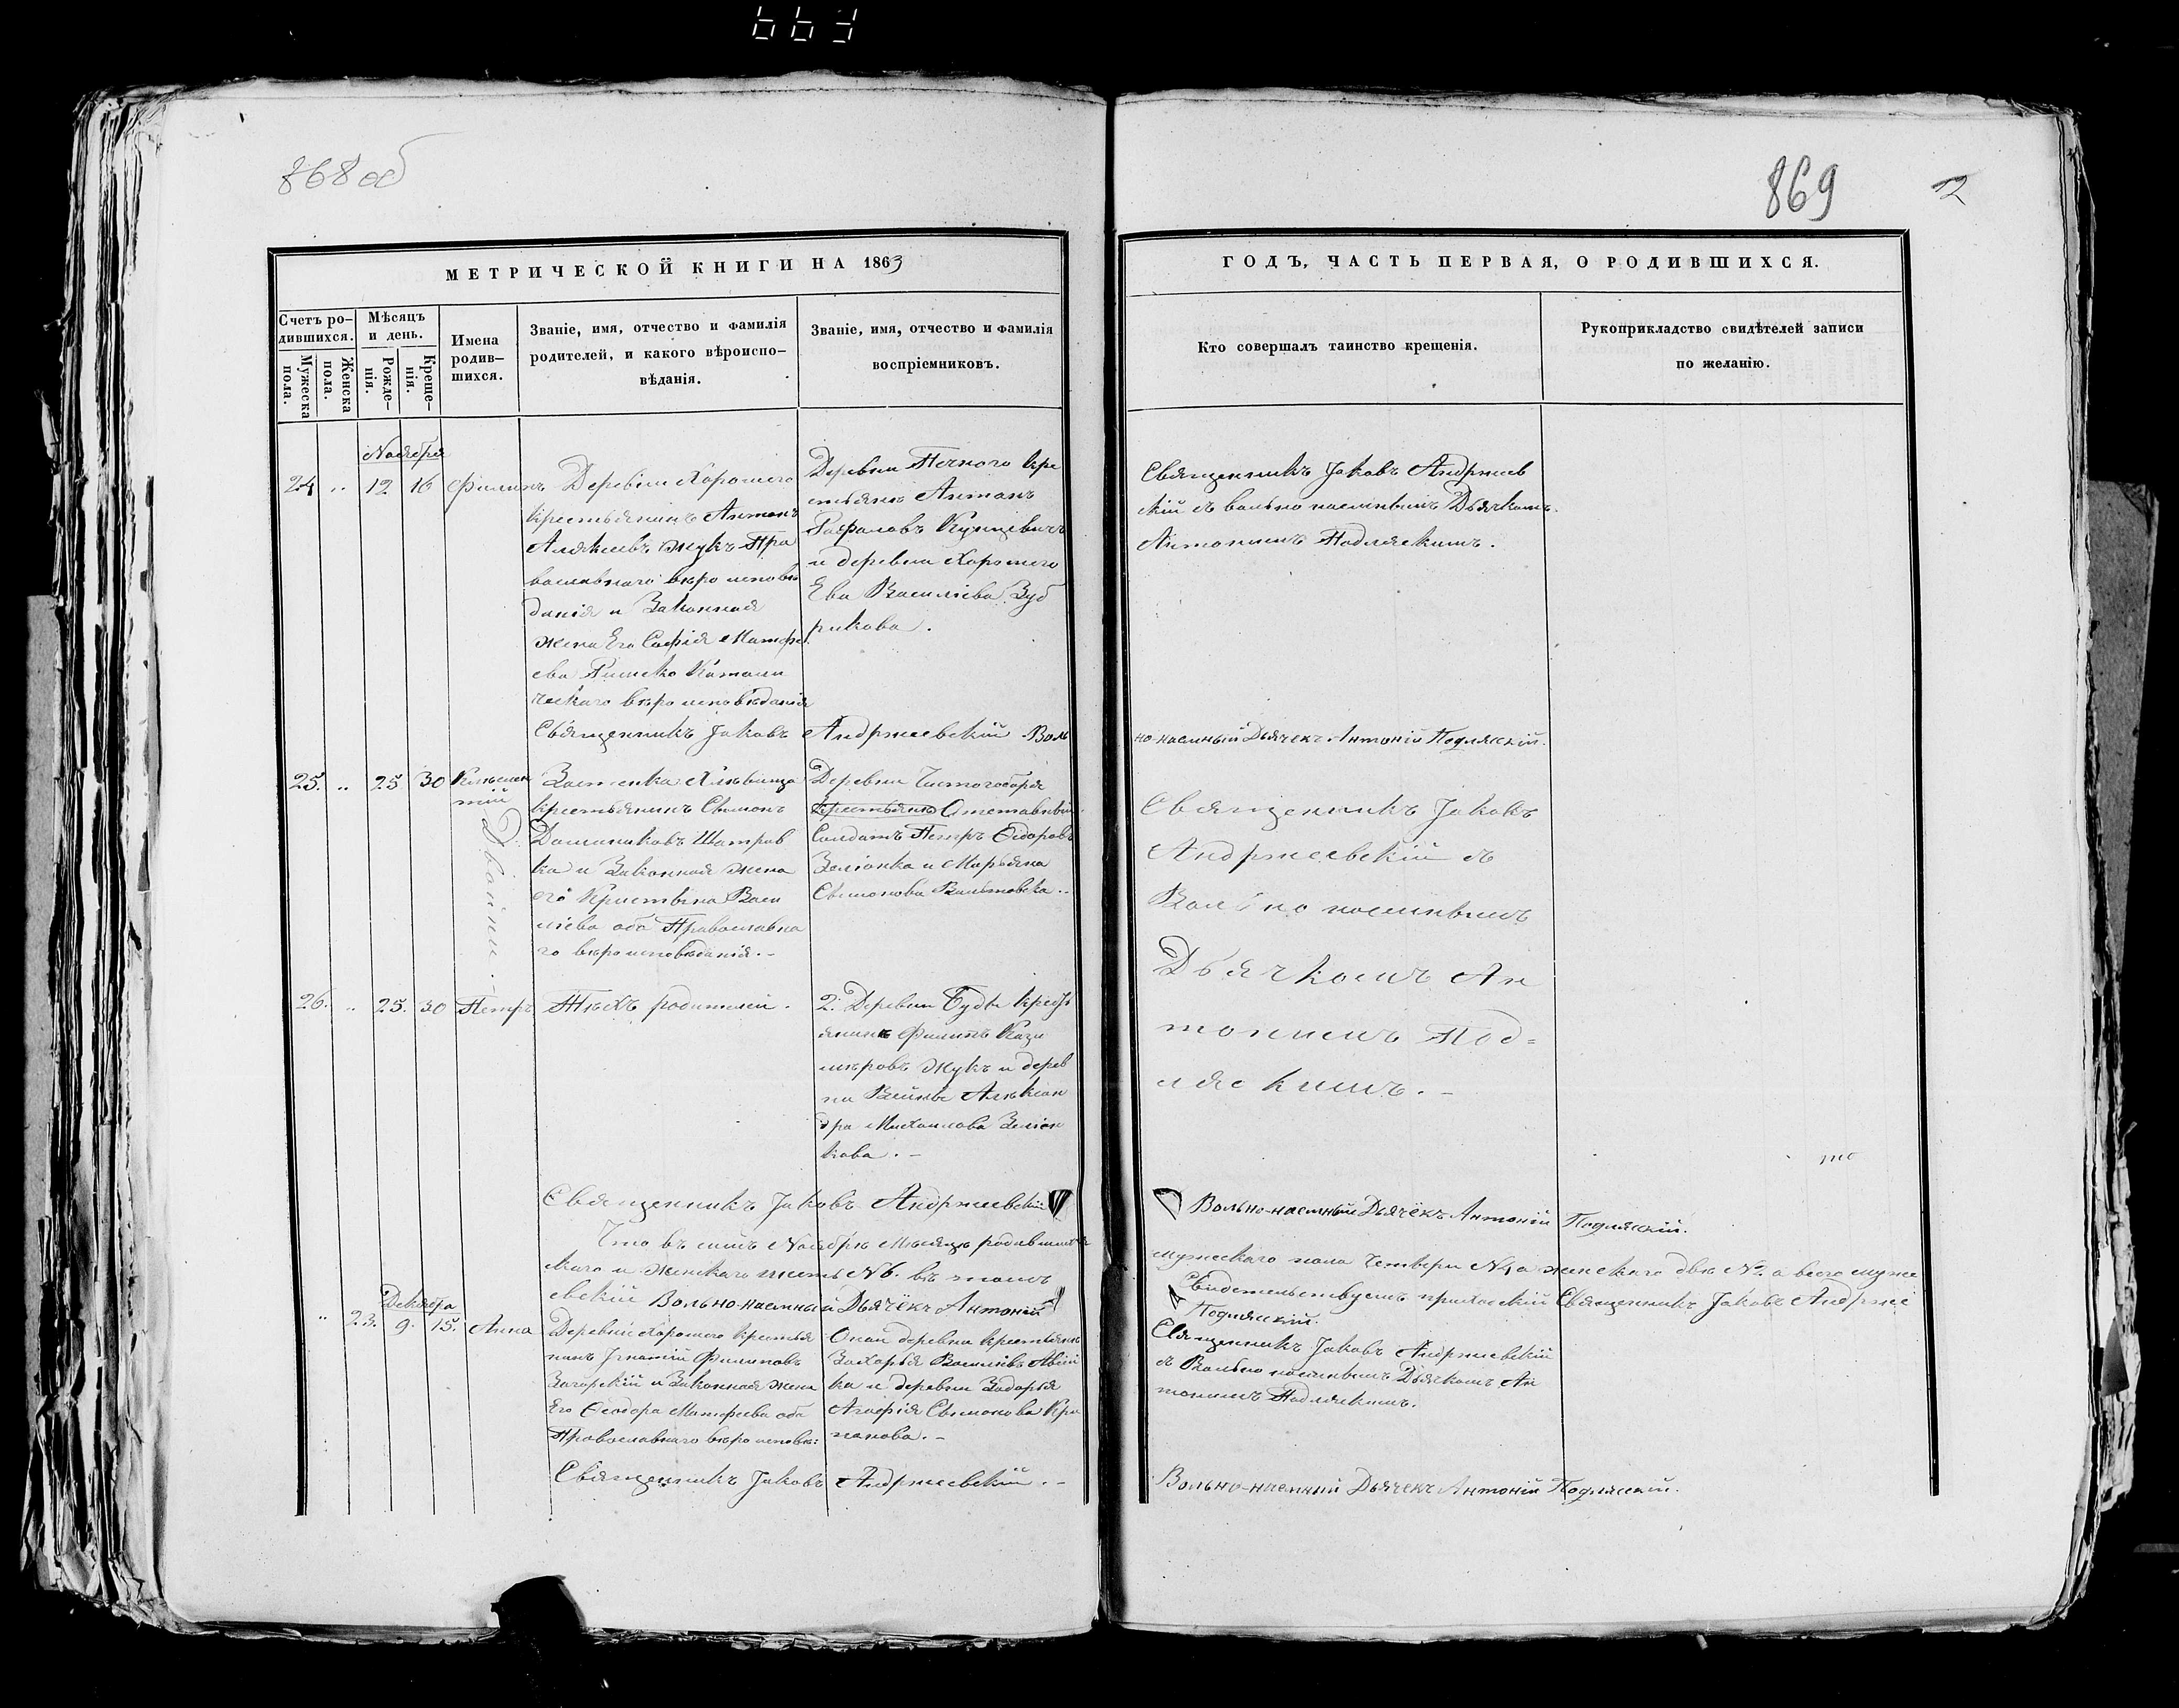 868 об
869
12
МЕТРИЧЕСКОЙ КНИГИ НА 1863
ГОДЪ, ЧАСТЬ ПЕРВАЯ, О РОДИВШИХСЯ.
Счетъ ро-
дившихся.
Мужеска
пола.
Женска
пола.
Мѣсяцъ
и день.
Рожде-
нія.
Креще-
нія.
Имена
родив-
шихся.
Званіе, имя, отчество и фамилія
родителей, и какого вѣроиспо-
вѣданія.
Званіе, имя, отчество и фамилія
воспріемниковъ.
Кто совершалъ таинство крещенія.
Рукоприкладство свидѣтелей записи
по желанію.
Ноября
24 „ 12 16 Филипъ
Деревни Хорошего
крестьянинъ Антонъ
Алексеевъ Жукъ Пра
вославнаго вѣроисповѣ
данія и Законная
жена Его Софія Матфе
ева Римско Катали
ческаго вѣроисповѣданія
Деревни Печкого кре
стьянъ Антонъ
Рафаловъ Кунцевичъ
и деревни Хорошего
Ева Василіева Зуб
рикова.
Священникъ Іаковъ Андржеев
скій съ вольно наемнымъ Дьячкомъ
Антоніемъ Подляскимъ.
Священникъ Іаковъ Андржеевскій Воль
но-наемный Дьячекъ Антоній Подляскій.
25. „ 25 30 Климен
тій
Двойни.
Застенка Хлѣвища
крестьянинъ Семіонъ
Доминиковъ Шатров
ка и Законная жена
его Кристына Васи
ліева оба Православна
го вѣроисповѣданія.-
Деревни Чистогобора
крестьянъ Отставный
Солдатъ Петръ Ѳідоровъ
Зеліонка и Марьяна
Семіонова Вайтовска..
Священникъ Іаковъ
Андржеевскій съ
Вольно наемнымъ
Дьячкомъ Ан
тоніемъ Под=
ляскимъ.-
26. „ 25. 30 Петръ
Тѣхъ родителей.
2. Деревни Буды крест
янинъ Филипъ Кази
мѣровъ Жукъ и дерев
ни Алѣксан
дра Михаилова Зеліон
кова.-
Священникъ Іаковъ Андржеевскій
Вольно-наемный Дьячёкъ Антоній Подляскій.
Что въ семъ Ноябрѣ Мѣсяцѣ родившихся
мужескаго пола Четверы №4, а женскаго двѣ № а всего муже
скаго и женскаго шесть №6. въ томъ
Свидетельствуемъ приходскій Священникъ Іаковъ Андржее
вскій Вольно-наемный Дьячёкъ Антоній
Подляскій.
Декабря
„ 23. 9. 15. Анна
Деревни Хорошего крестья
нинъ Игнатій Филиповъ
Загорскій и Законная жена
Его Ѳеодора Матфеева оба
Православнаго вѣроисповѣ:
Оной деревни крестьянъ
Захарья Василіевъ
ка и деревни Задорья
Агафія Семіонова Кра
панова.-
Священникъ Іаковъ Андржеевскій
съ Вольно наемнымъ Дьячкомъ Ан
тоніемъ Подляскимъ.
Священникъ Іаковъ Андржеевскій.-
Вольно-наемный Дьячекъ Антоній Подляскій.